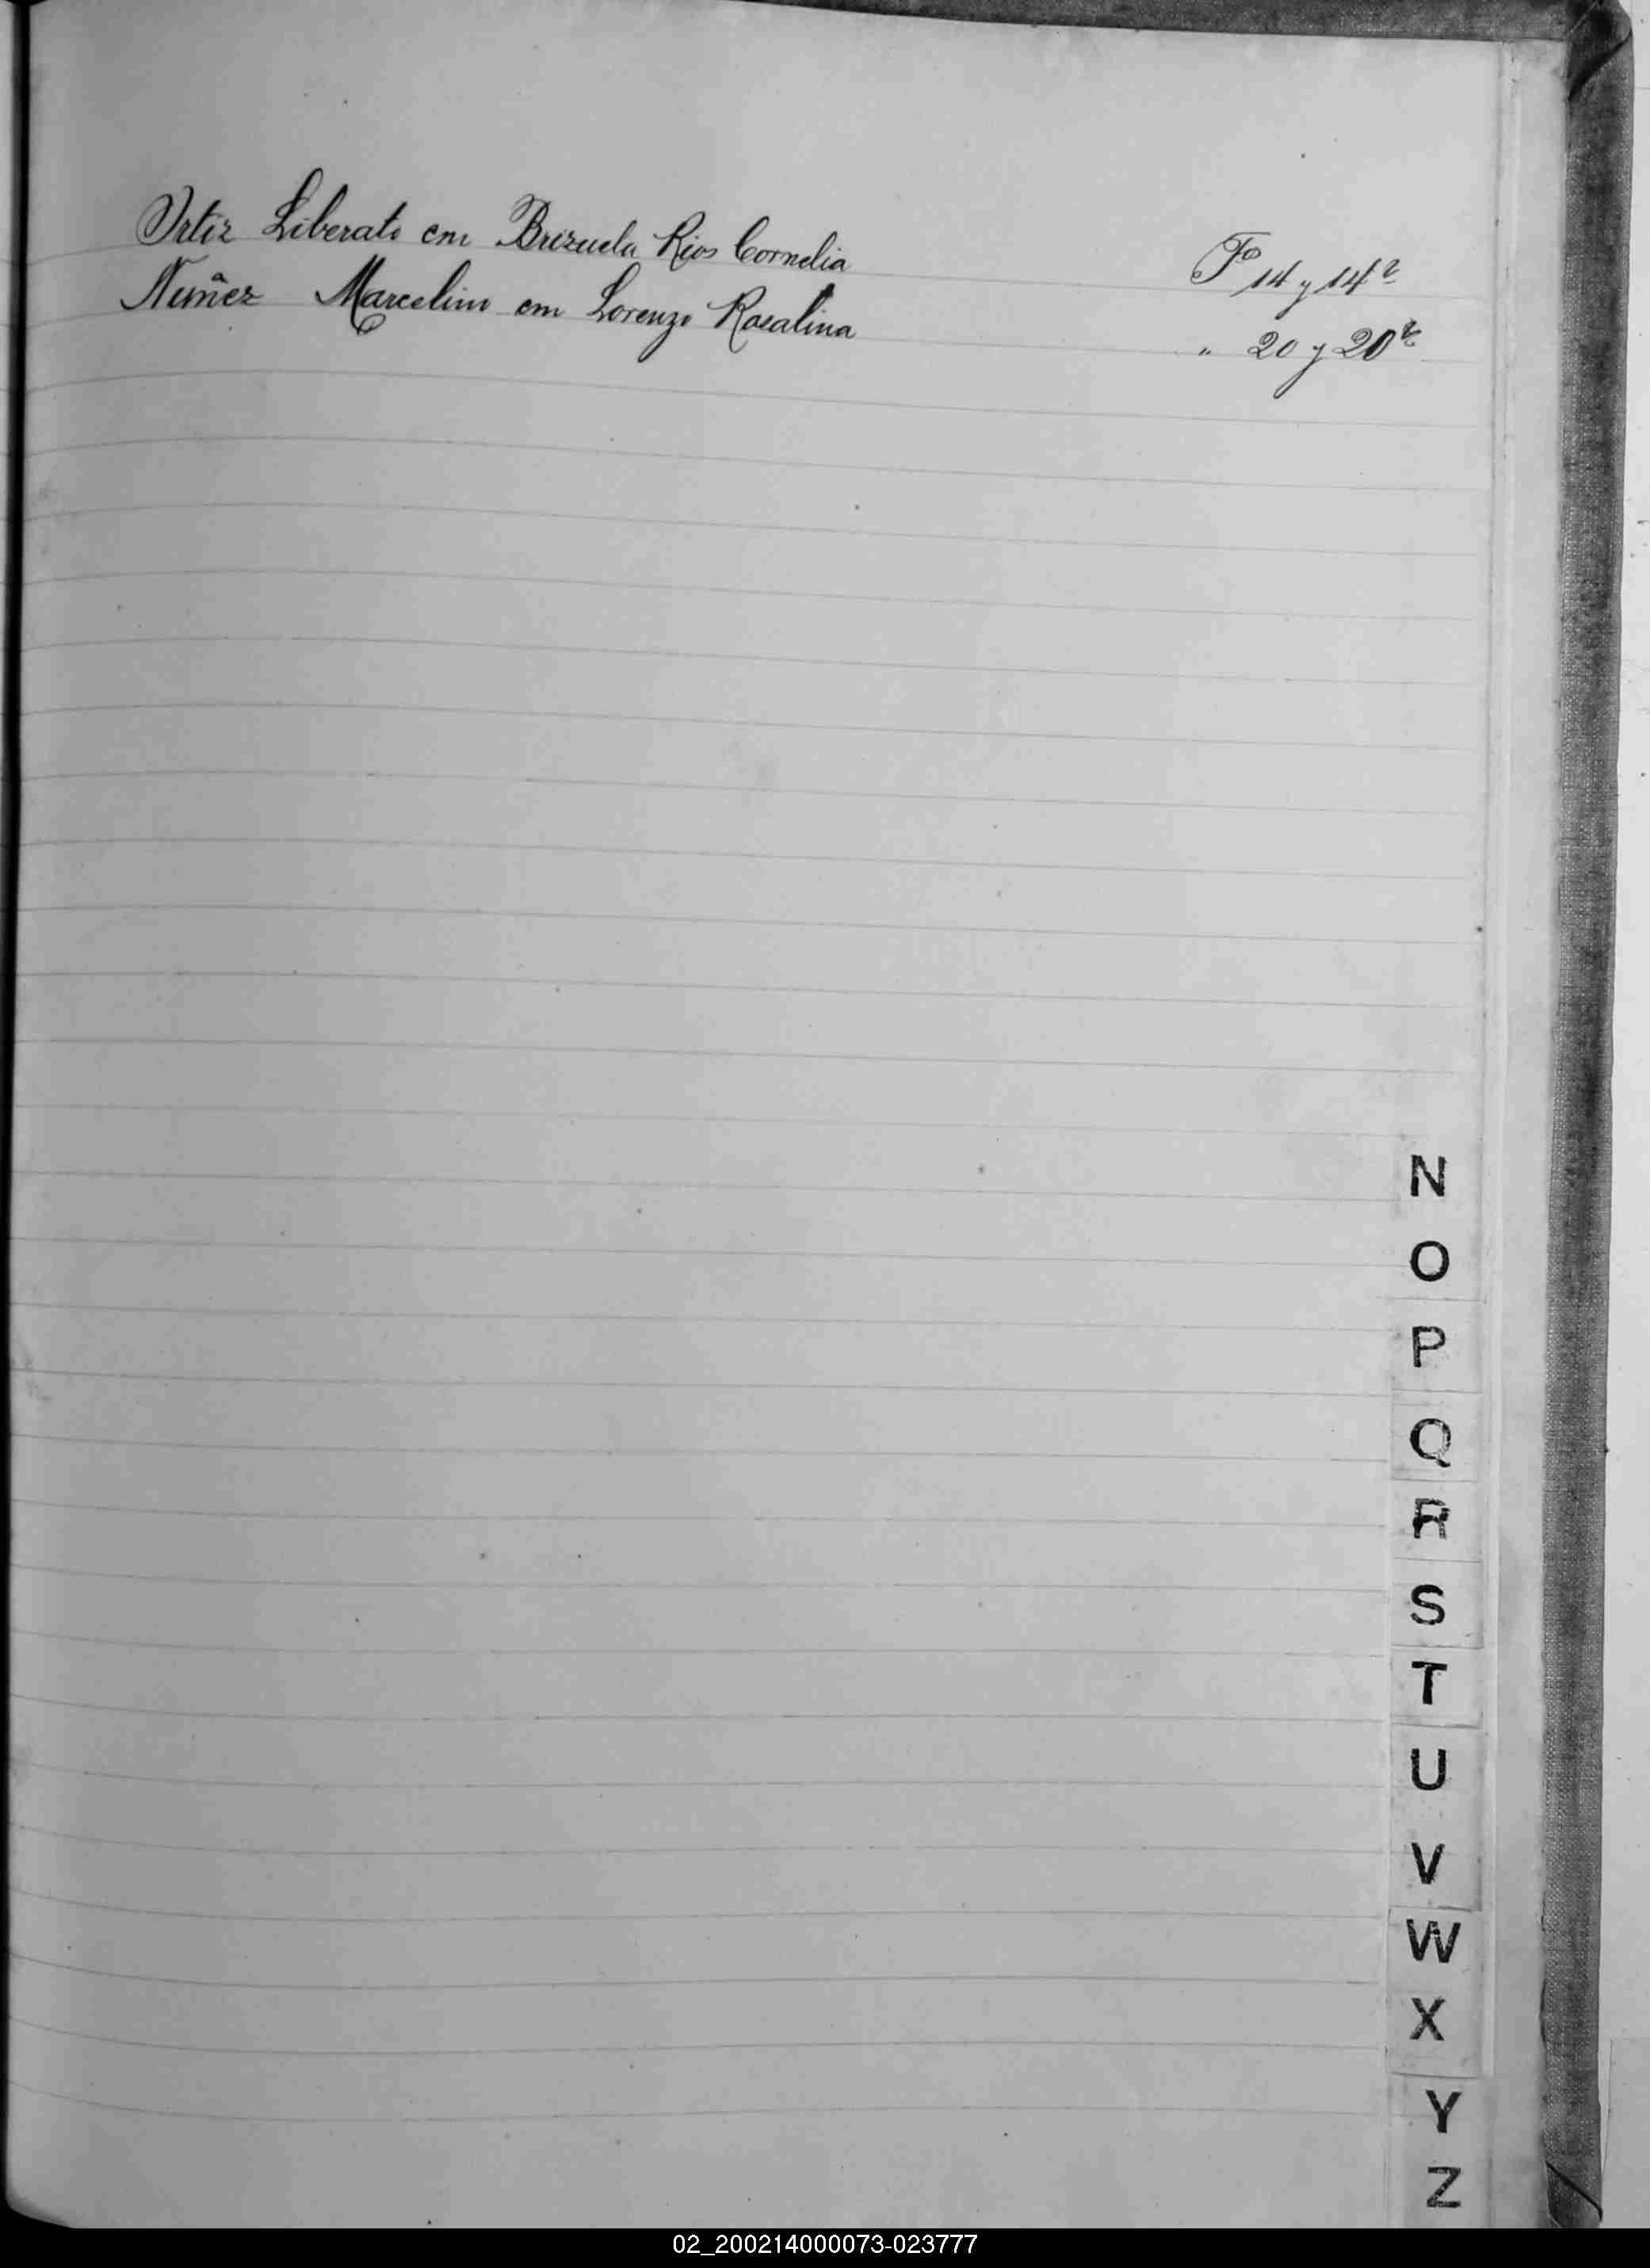 Ortiz Liberato con Brizuela Rios Cornelia Fº 14 y 14 v
Nuñez Marcelino con Lorenzo Rosalina " 20 y 20 v
N
O
P
Q
R
S
T
U
V
W
X
Y
Z
02_200214000073-023777